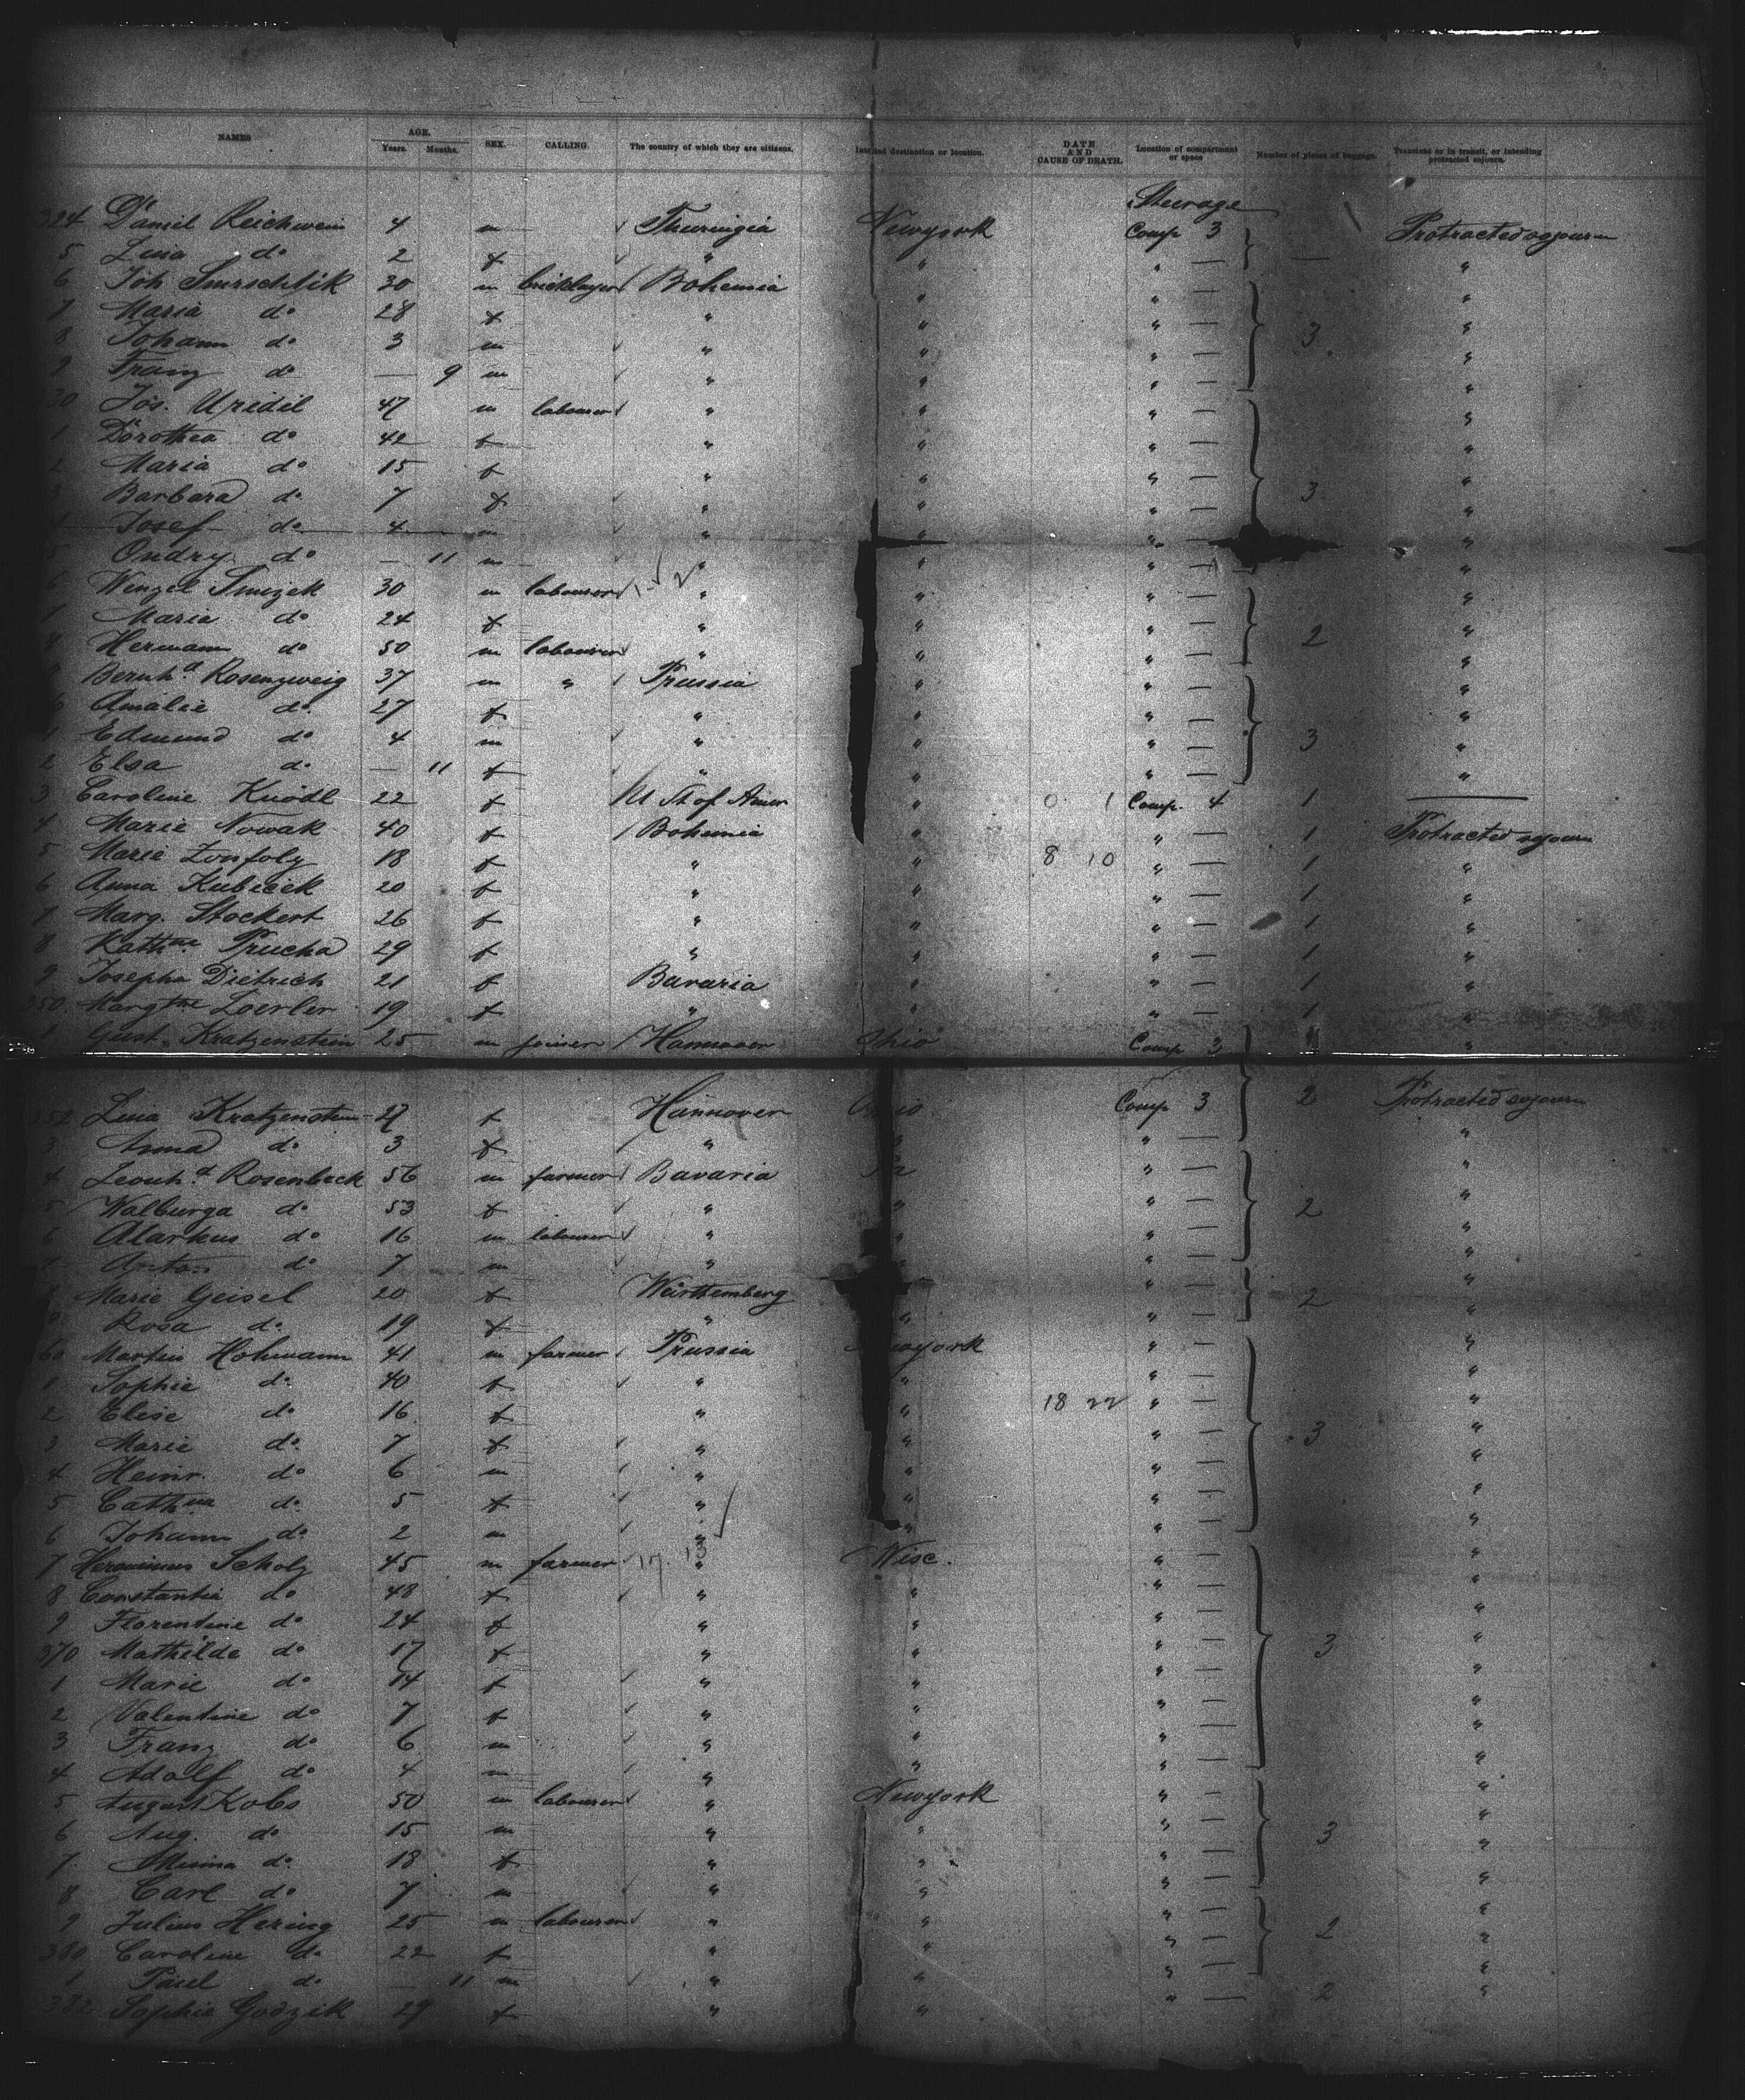 NAMES AGE. Years. Months. SEX. CALLING. The country of which they are citizens. Intended destination or location. DATE AND CAUSE OF DEATH. Location of compartment or space Number of pieces of baggage. Transient or in transit, or intending protracted sojourn.
Steerage
324 Daniel Reichwein 4 m Thuringia Newyork Comp 3 Protracted sojourn
5 Lina do 2 f " " " — — "
6 Joh Smrschlik 30 m bricklayer Bohemia " " — "
7 Maria do 28 f " " " — 3 "
8 Johann do 3 m " " " — "
9 Franz do — 9 m " " " — "
30 Jos. Uridil 47 m labourer " " " — "
1 Dorothea do 42 f " " " — "
2 Maria do 15 f " " " — "
3 Barbara do 7 f " " " — 3 "
4 Josef do 4 m " " " — "
5 Ondry do — 11 m " " " — "
6 Wenzel Smizek 30 m labourer " " " — "
7 Maria do 24 f " " " — 2 "
8 Hermann do 50 m labourer " " " — "
9 Bernhd Rosenzweig 37 m " Prussia " " — "
Amalie do. 27 f " " " — "
1 Edmund do 4 m " " " — 3 "
2 Elsa do. — 11 f " " " — "
3 Caroline Knödl 22 f U St of Amer " 0 1 Comp. 4 1 —
4 Marie Nowak 40 f Bohemia " " — 1 Protracted sojourn
5 Marie 18 f " " 8 10 " — 1 "
6 Anna Kubicek 20 f " " " — 1 "
7 Marg. Stockert 26 f " " " — 1 "
8 Kathne Prucha 29 f " " " — 1 "
9 Josepha Dietrich 21 f Bavaria " " — 1 "
350. Margthe Loerler 19 f " " " — 1 "
1 Gust. Kratzenstein 25 m joiner Hannover Ohio Comp 3 "
352 Lina Kratzenstein 27 f Hannover Comp 3 2 Protracted sojourn
3 Anna do 3 f " " " — "
4 Leonhd Rosenbeck 56 m farmer Bavaria " — "
5 Walburga do 53 f " " " — 2 "
6 Markus do 16 m labourer " " " — "
7 Anton do 7 m " " " — "
Marie Geisel 20 f Württemberg " — 2 "
Rosa do. 19 f " " " — "
60 Martin Hohmann 41 m farmer Prussia Newyork " — "
1 Sophie do. 40 f " " " — "
2 Elise do 16 f " " 18 22 " — "
3 Marie do. 7 f " " " — 3 "
4 Heinr. do 6 m " " " — "
5 Cathna do. 5 f " " " — "
6 Johann do. 2 m " " " — "
7 Heronimus Scholz 45 m farmer " Wisc. " — "
8 Constantia do 48 f " " " — "
9 Florentine do 24 f " " " — "
370 Mathilde do 17 f " " " — 3 "
1 Marie do 14 f " " " — "
2 Valentine do 7 f " " " — "
3 Franz do 6 m " " " — "
4 Adolf do 4 m " " " — "
5 August Kobs 50 m labourer " Newyork " — "
6 Aug. do 15 m " " " — 3 "
7. Minna do. 18 f " " " — "
8 Carl do 7 m " " " — "
9 Julius Hering 25 m labourer " " " — "
380 Caroline do 22 f " " " — 2 "
1 Paul do — 11 m " " " — "
382 Sophie Godzik 29 f " " " — 2 "